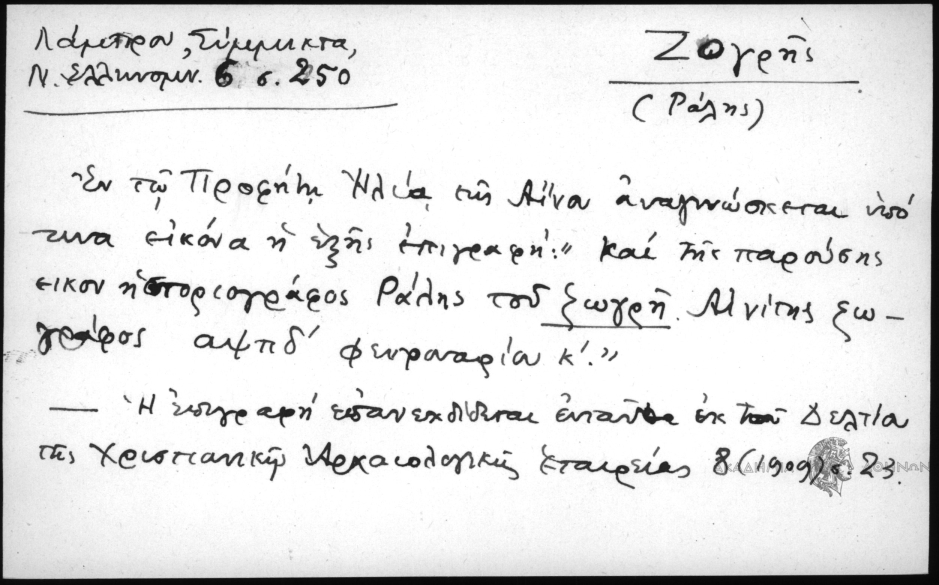 Λάμπρου, Σύμμικτα,
Ν. Ἑλληνομν. 6 σ. 250
Ζογρῆς
(Ράλης)
Ἐν τῷ Προφήτῃ Ἠλίᾳ τῆς Αἴνου ἀναγινώσκεται ὑπό
τινα εἰκόνα ἡ ἑξῆς ἐπιγραφή: "Καί τῆς παρούσης
εικον ἡστοριογράφος Ράλης τοῦ ζωγρῆ. Αἰνίτης ζω-
γράφος αψπδ' φευρουαρίου κ'."
— Ἡ ἐπιγραφή ἐπανεκδίδεται ἐνταῦθα ἐκ τοῦ Δελτίου
τῆς Χριστιανικῆς Ἀρχαιολογικῆς Ἑταιρείας 8 (1909) σ. 23.
ΑΚΑΔΗΜΙΑ ΑΘΗΝΩΝ